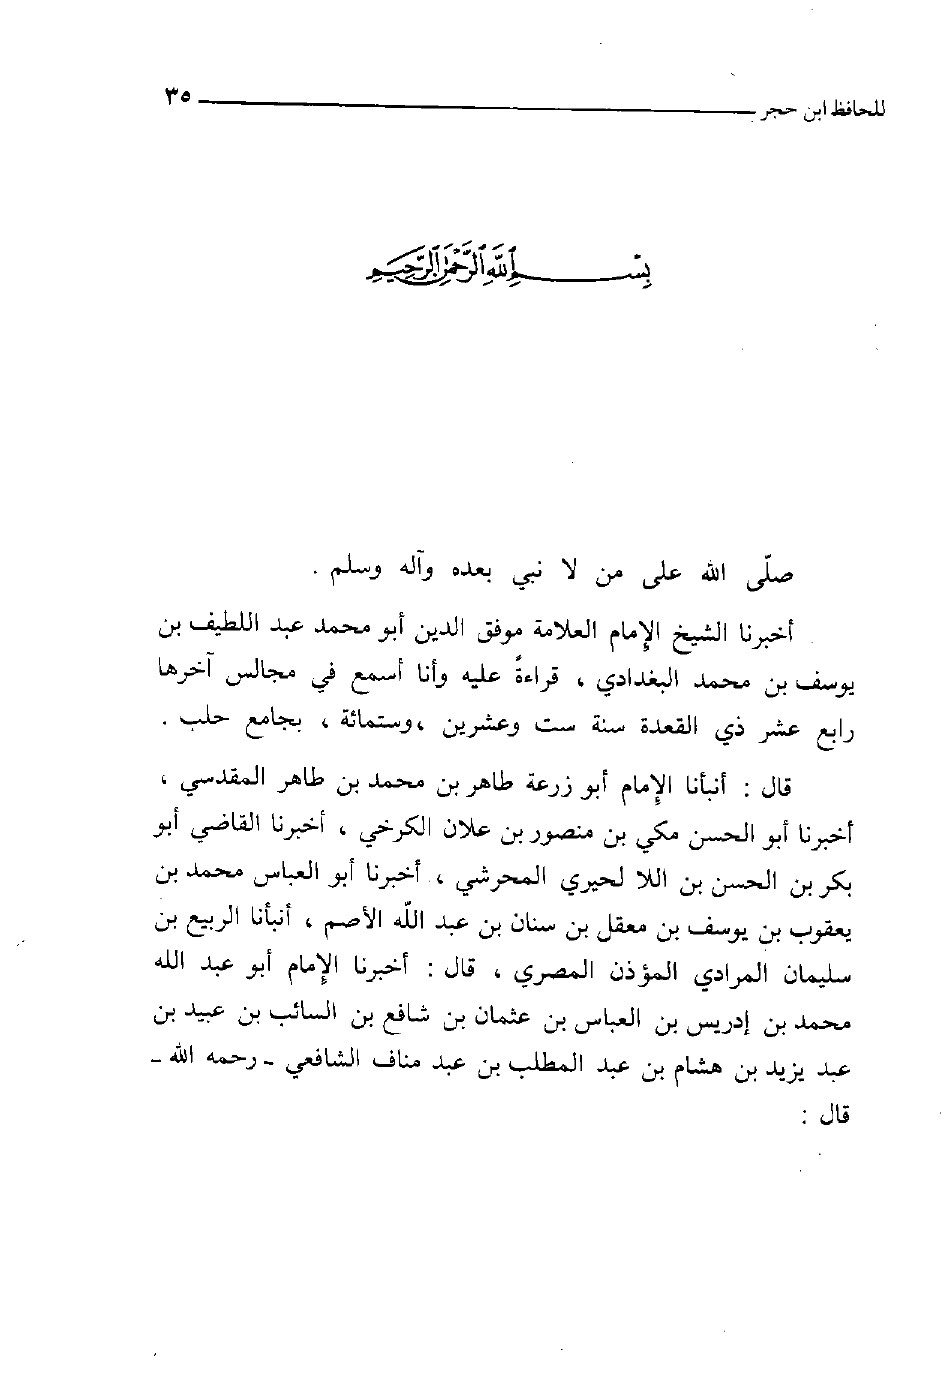 للحافظ ابن حجر ٣٥
بِسْمِ اللَّهِ الرَّحْمَٰنِ الرَّحِيمِ
صلّى الله على من لا نبي بعده وآله وسلم .
أخبرنا الشيخ الإمام العلامة موفق الدين أبو محمد عبد اللطيف بن
يوسف بن محمد البغدادي ، قراءةً عليه وأنا أسمع في مجالس آخرها
رابع عشر ذي القعدة سنة ست وعشرين ،وستمائة ، بجامع حلب .
قال : أنبأنا الإمام أبو زرعة طاهر بن محمد بن طاهر المقدسي ،
أخبرنا أبو الحسن مكي بن منصور بن علان الكرخي ، أخبرنا القاضي أبو
بكر بن الحسن بن اللا لحيري المحرشي ، أخبرنا أبو العباس محمد بن
يعقوب بن يوسف بن معقل بن سنان بن عبد اللّه الأصم ، أنبأنا الربيع بن
سليمان المرادي المؤذن المصري ، قال : أخبرنا الإمام أبو عبد الله
محمد بن إدريس بن العباس بن عثمان بن شافع بن السائب بن عبيد بن
عبد يزيد بن هشام بن عبد المطلب بن عبد مناف الشافعي ـ رحمه الله ـ
قال :